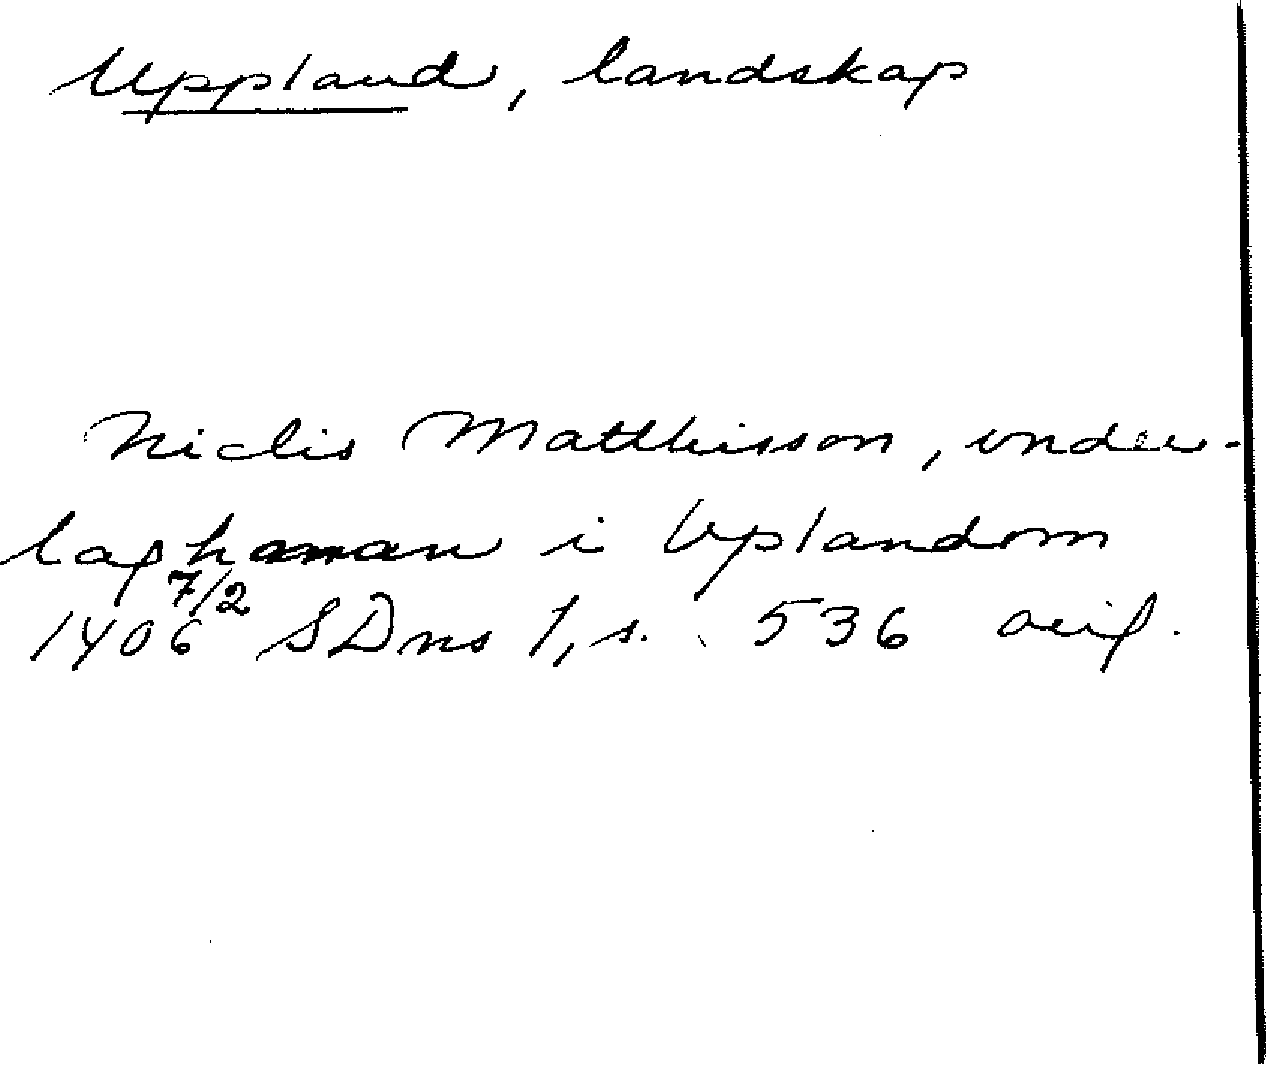 Uppland, landskap
Niclis Mathisson, vnder-
laghman i Vplandom
1406 7/2 SDns 1, s. 536 orig.